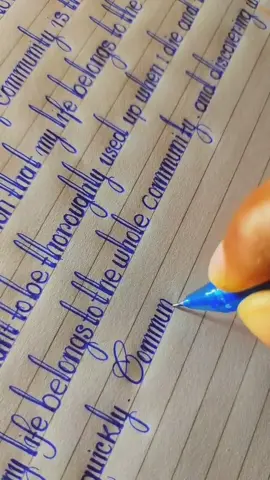 community is th
on that my life belongs to the
ant to be thoroughly used up when i die and
my life belongs to the whole community. and discovering
quickly. Commun